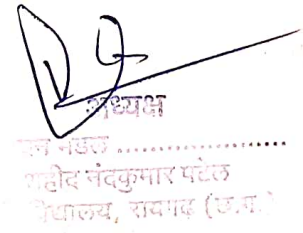 अध्यक्ष
मंडल ......................
शहीद नंदकुमार पटेल
विद्यालय, रायगढ़ (छ.ग.)